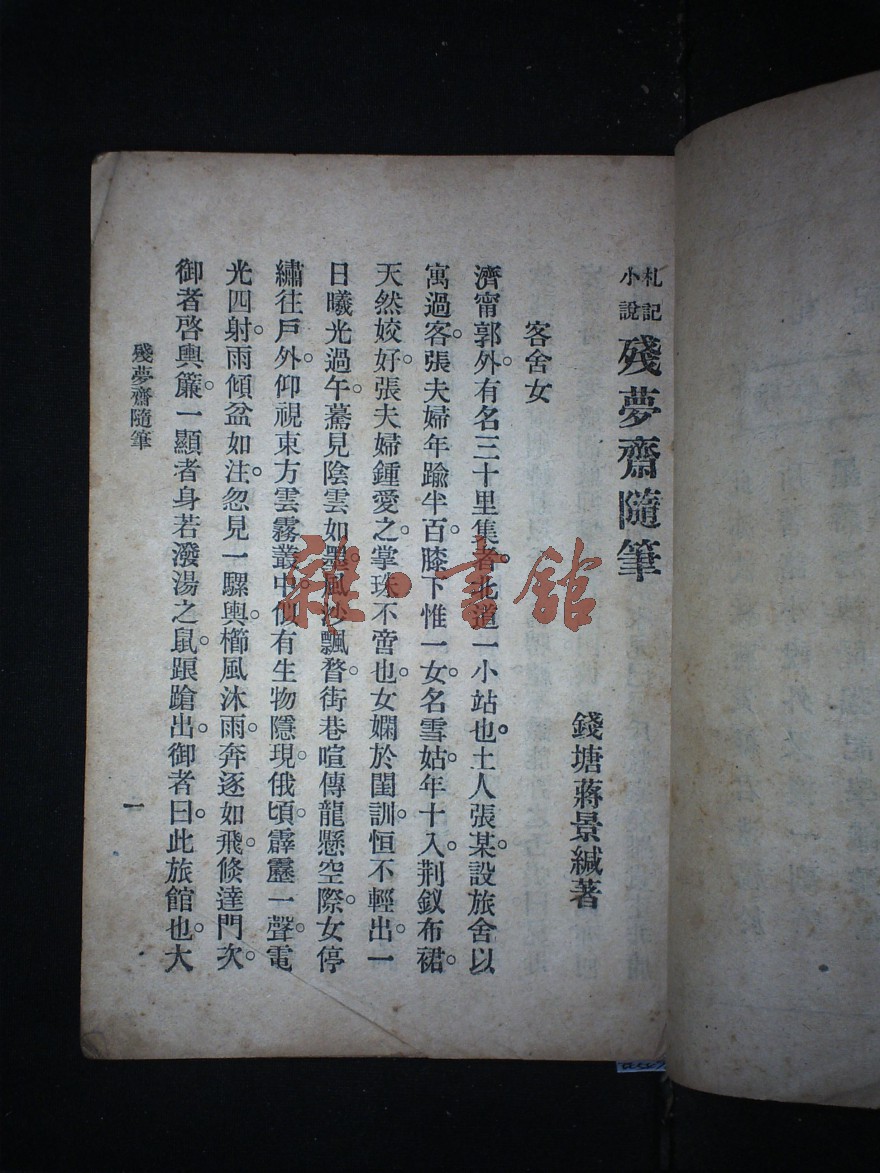 札記小說 殘夢齋隨筆
錢塘蔣景緘著
客舍女
濟甯郭外。有名三十里集者。北道一小站也。土人張某。設旅舍以
寓過客。張夫婦年踰半百。膝下惟一女。名雪姑。年十八。荆釵布裙。
天然姣好。張夫婦鍾愛之。掌珠不啻也。女嫻於閨訓。恒不輕出。一
日曦光過午。驀見陰雲如墨。風沙飄瞀。街巷喧傳龍懸空際。女停
繡往戶外。仰視東方雲霧叢中。似有生物隱現。俄頃霹靂一聲。電
光四射。雨傾盆如注。忽見一騾輿。櫛風沐雨。奔逐如飛。倏達門次。
御者啓輿簾。一顯者身若潑湯之鼠。踉蹌出。御者曰。此旅館也。大
殘夢齋隨筆
一
雜·書館